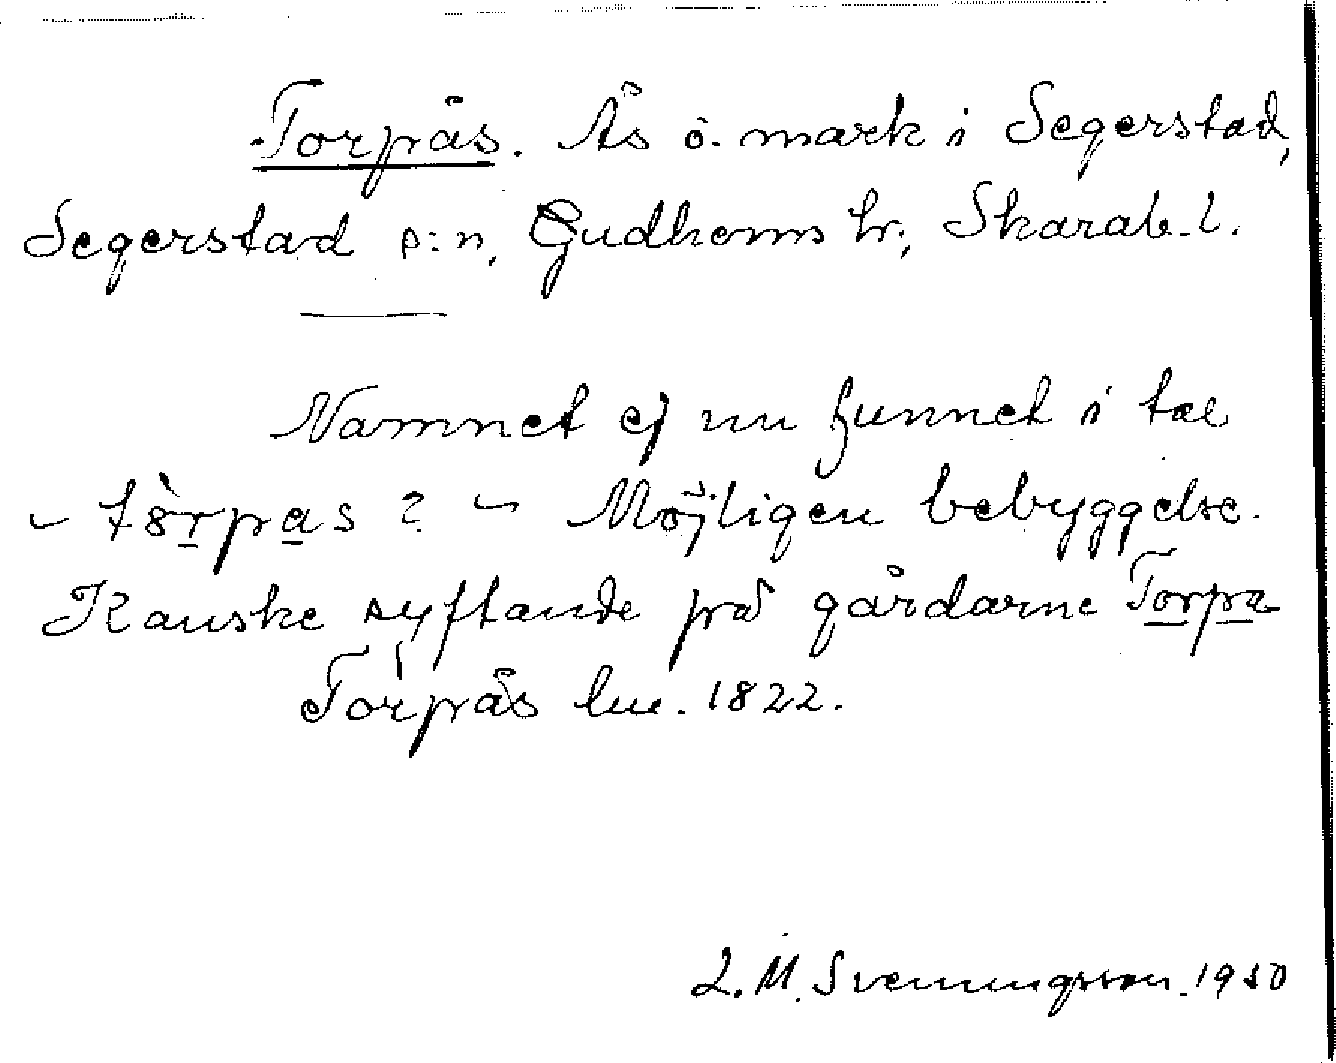 Torpås. Ås o. mark i Segerstad,
Segerstad s:n, Gudhems hr, Skarab. l.
Namnet ej nu funnet i tal
– törpas? – Möjligen bebyggelse.
Kanske syftande på gårdarne Torpa
Torpås lm. 1822.
L. M. Svenungsson. 1930